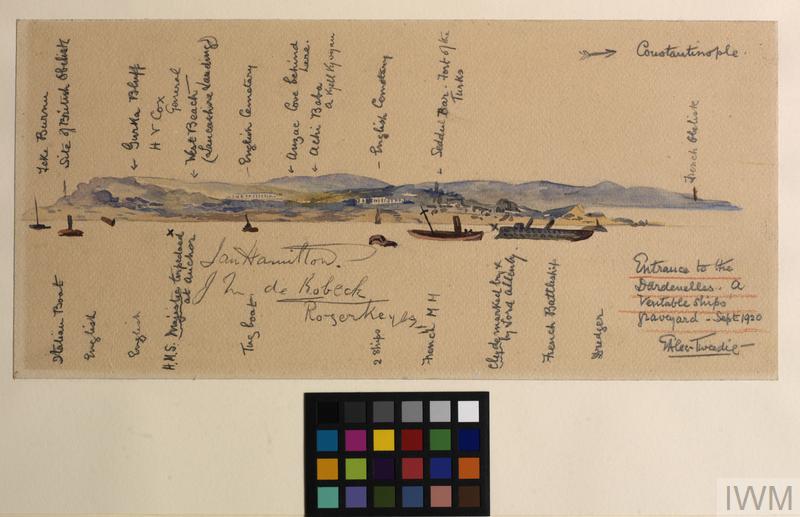 Teke Burnu
Site of British Obelisk
← Gurka Bluff
H V Cox
General
← West Beach
(Lancashire Landing)
- English Cemetery
← Anzac Cove behind
here.
← Achi Baba
- English Cemetery
← Seddul Bar - Fort of the
Turks
Constantinople.
French Obelisk
Italian Boat
English
English
x
H.M.S. Majestic torpedoed
at anchor
Ian Hamilton.
J M de Robeck
Roger Keyes
Tug boat
2 ships
French M M
x
Clyde marked by x
by Lord Allenby.
French Battleship
Dredger
Entrance to the
Dardenelles. A
Veritable ships
graveyard - Sept 1920
EAlec-Tweedie -
IWM